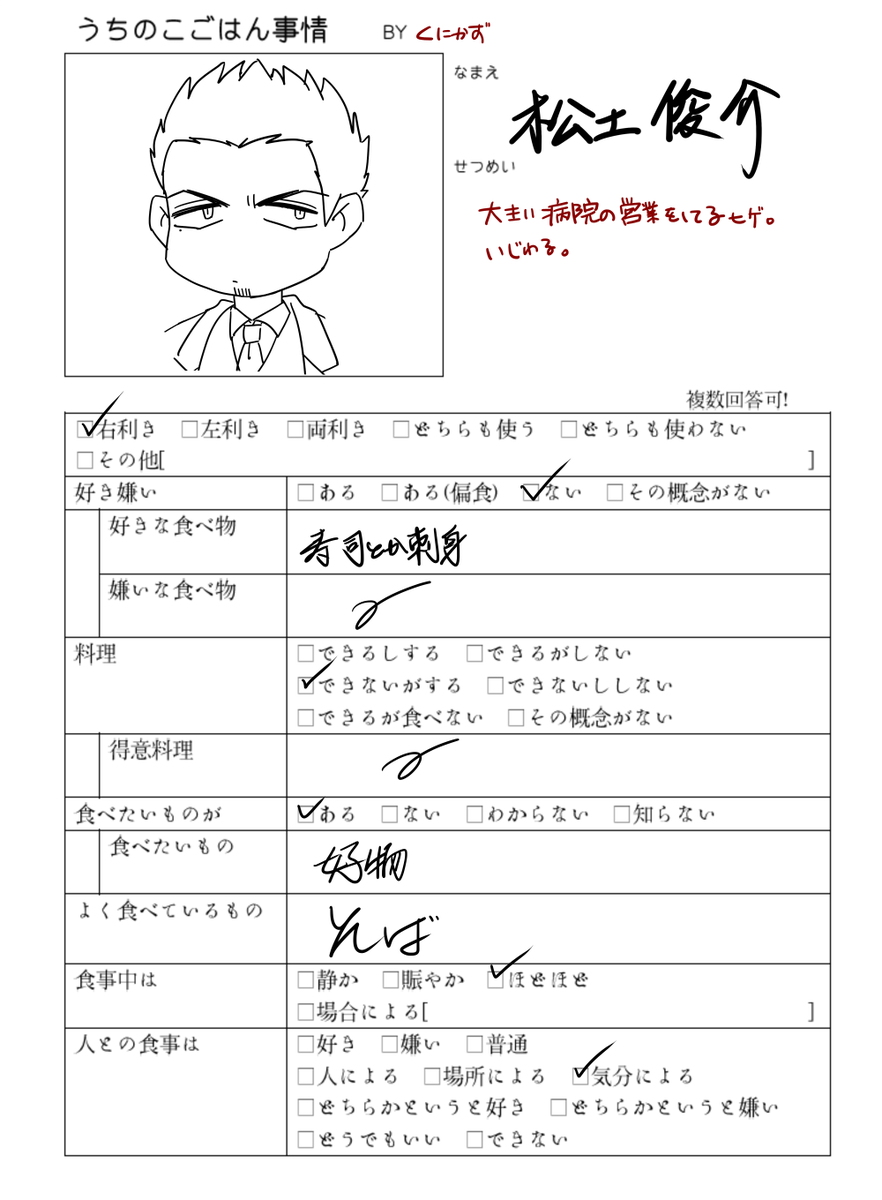 うちのこごはん事情 BY くにかず
なまえ
松土 俊介
せつめい
大きい病院の営業をしてるヒゲ。
いじわる。
複数回答可!
☑右利き □左利き □両利き □どちらも使う □どちらも使わない
□その他[ ]
好き嫌い □ある □ある(偏食) ☑ない □その概念がない
好きな食べ物 寿司とか刺身
嫌いな食べ物
料理 □できるしする □できるがしない
☑できないがする □できないししない
□できるが食べない □その概念がない
得意料理
食べたいものが ☑ある □ない □わからない □知らない
食べたいもの 好物
よく食べているもの そば
食事中は □静か □賑やか ☑ほどほど
□場合による[ ]
人との食事は □好き □嫌い □普通
□人による □場所による ☑気分による
□どちらかというと好き □どちらかというと嫌い
□どうでもいい □できない